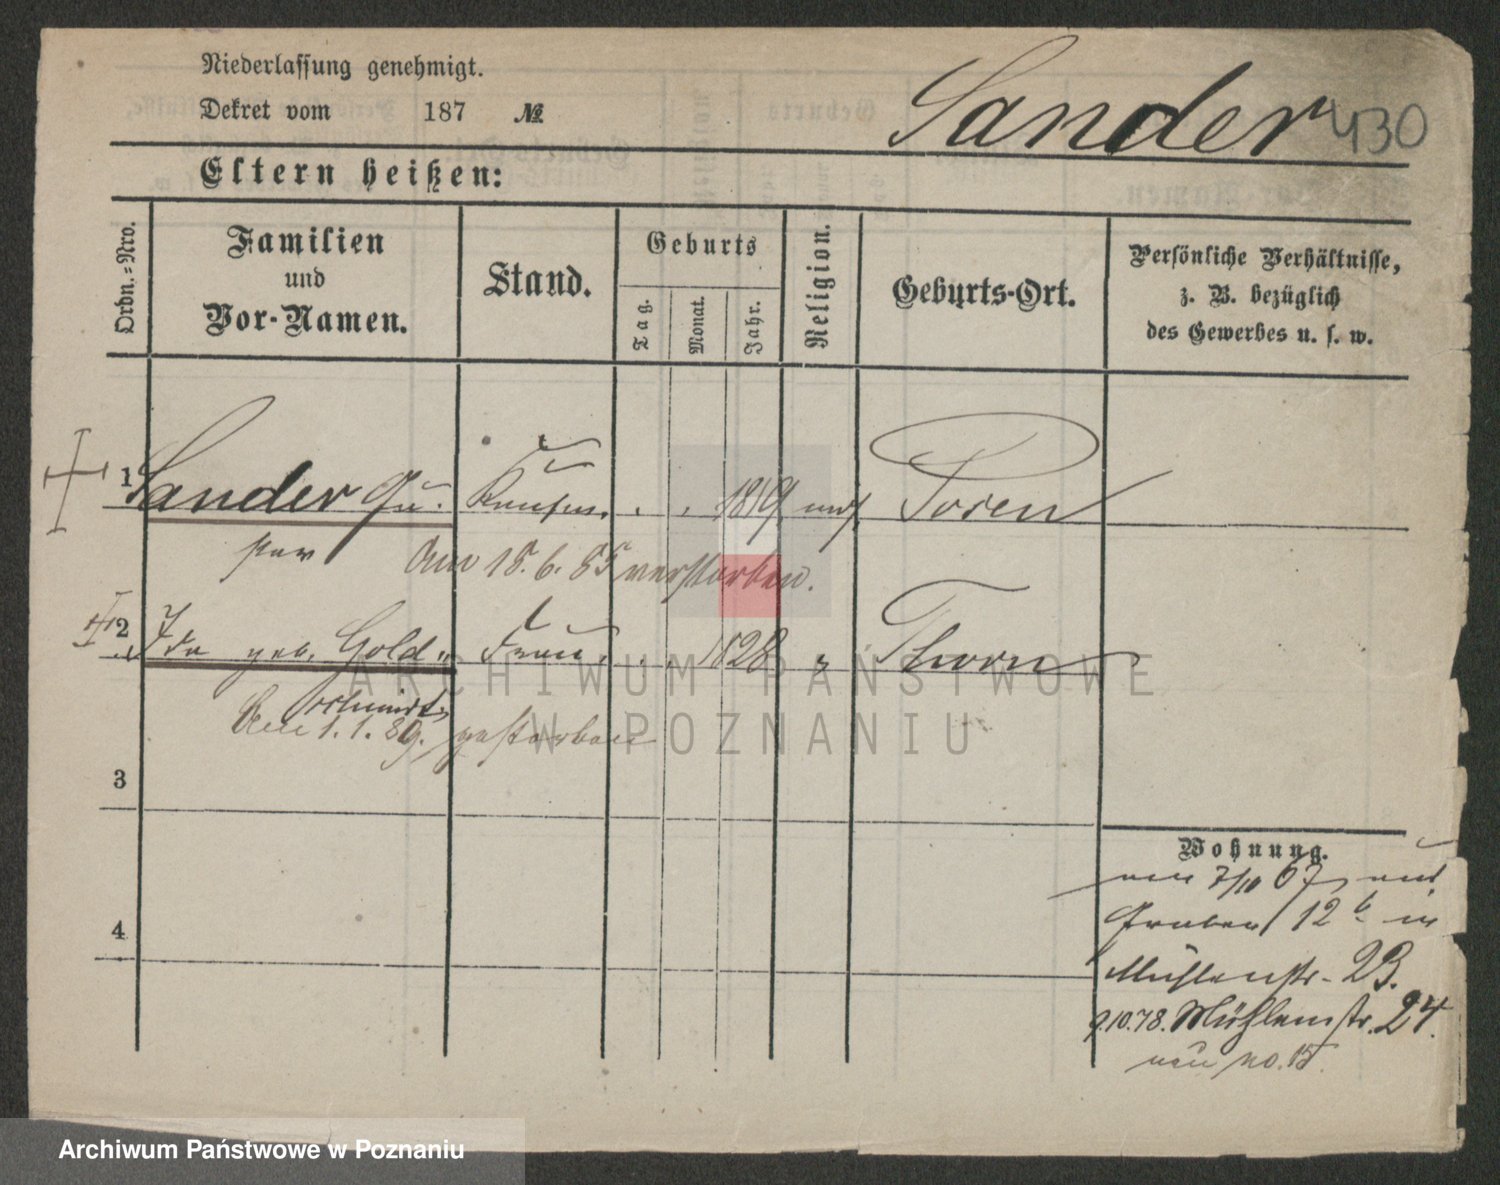 Niederlassung genehmigt.
Dekret vom 187 №
Sander 430
Eltern heißen:
Ordn.=Nro.
Familien
und
Vor-Namen.
Stand.
Geburts
Tag.
Monat.
Jahr.
Religion.
Geburts-Ort.
Persönliche Verhältnisse,
z. B. bezüglich
des Gewerbes u. s. w.
1 Sander Gu- Kaufm. 1819 mos Posen
stav
Am 18.6.85 verstorben.
2 Ida geb. Gold- Frau 1828 " Thorn
schmidt
Am 1.1.89. gestorben
3
4
Wohnung.
7/10 67
Graben 12 b in
Mühlenstr. 23.
9.10.78. Mühlenstr. 24.
neu no. 15.
ARCHIWUM PAŃSTWOWE
W POZNANIU
Archiwum Państwowe w Poznaniu